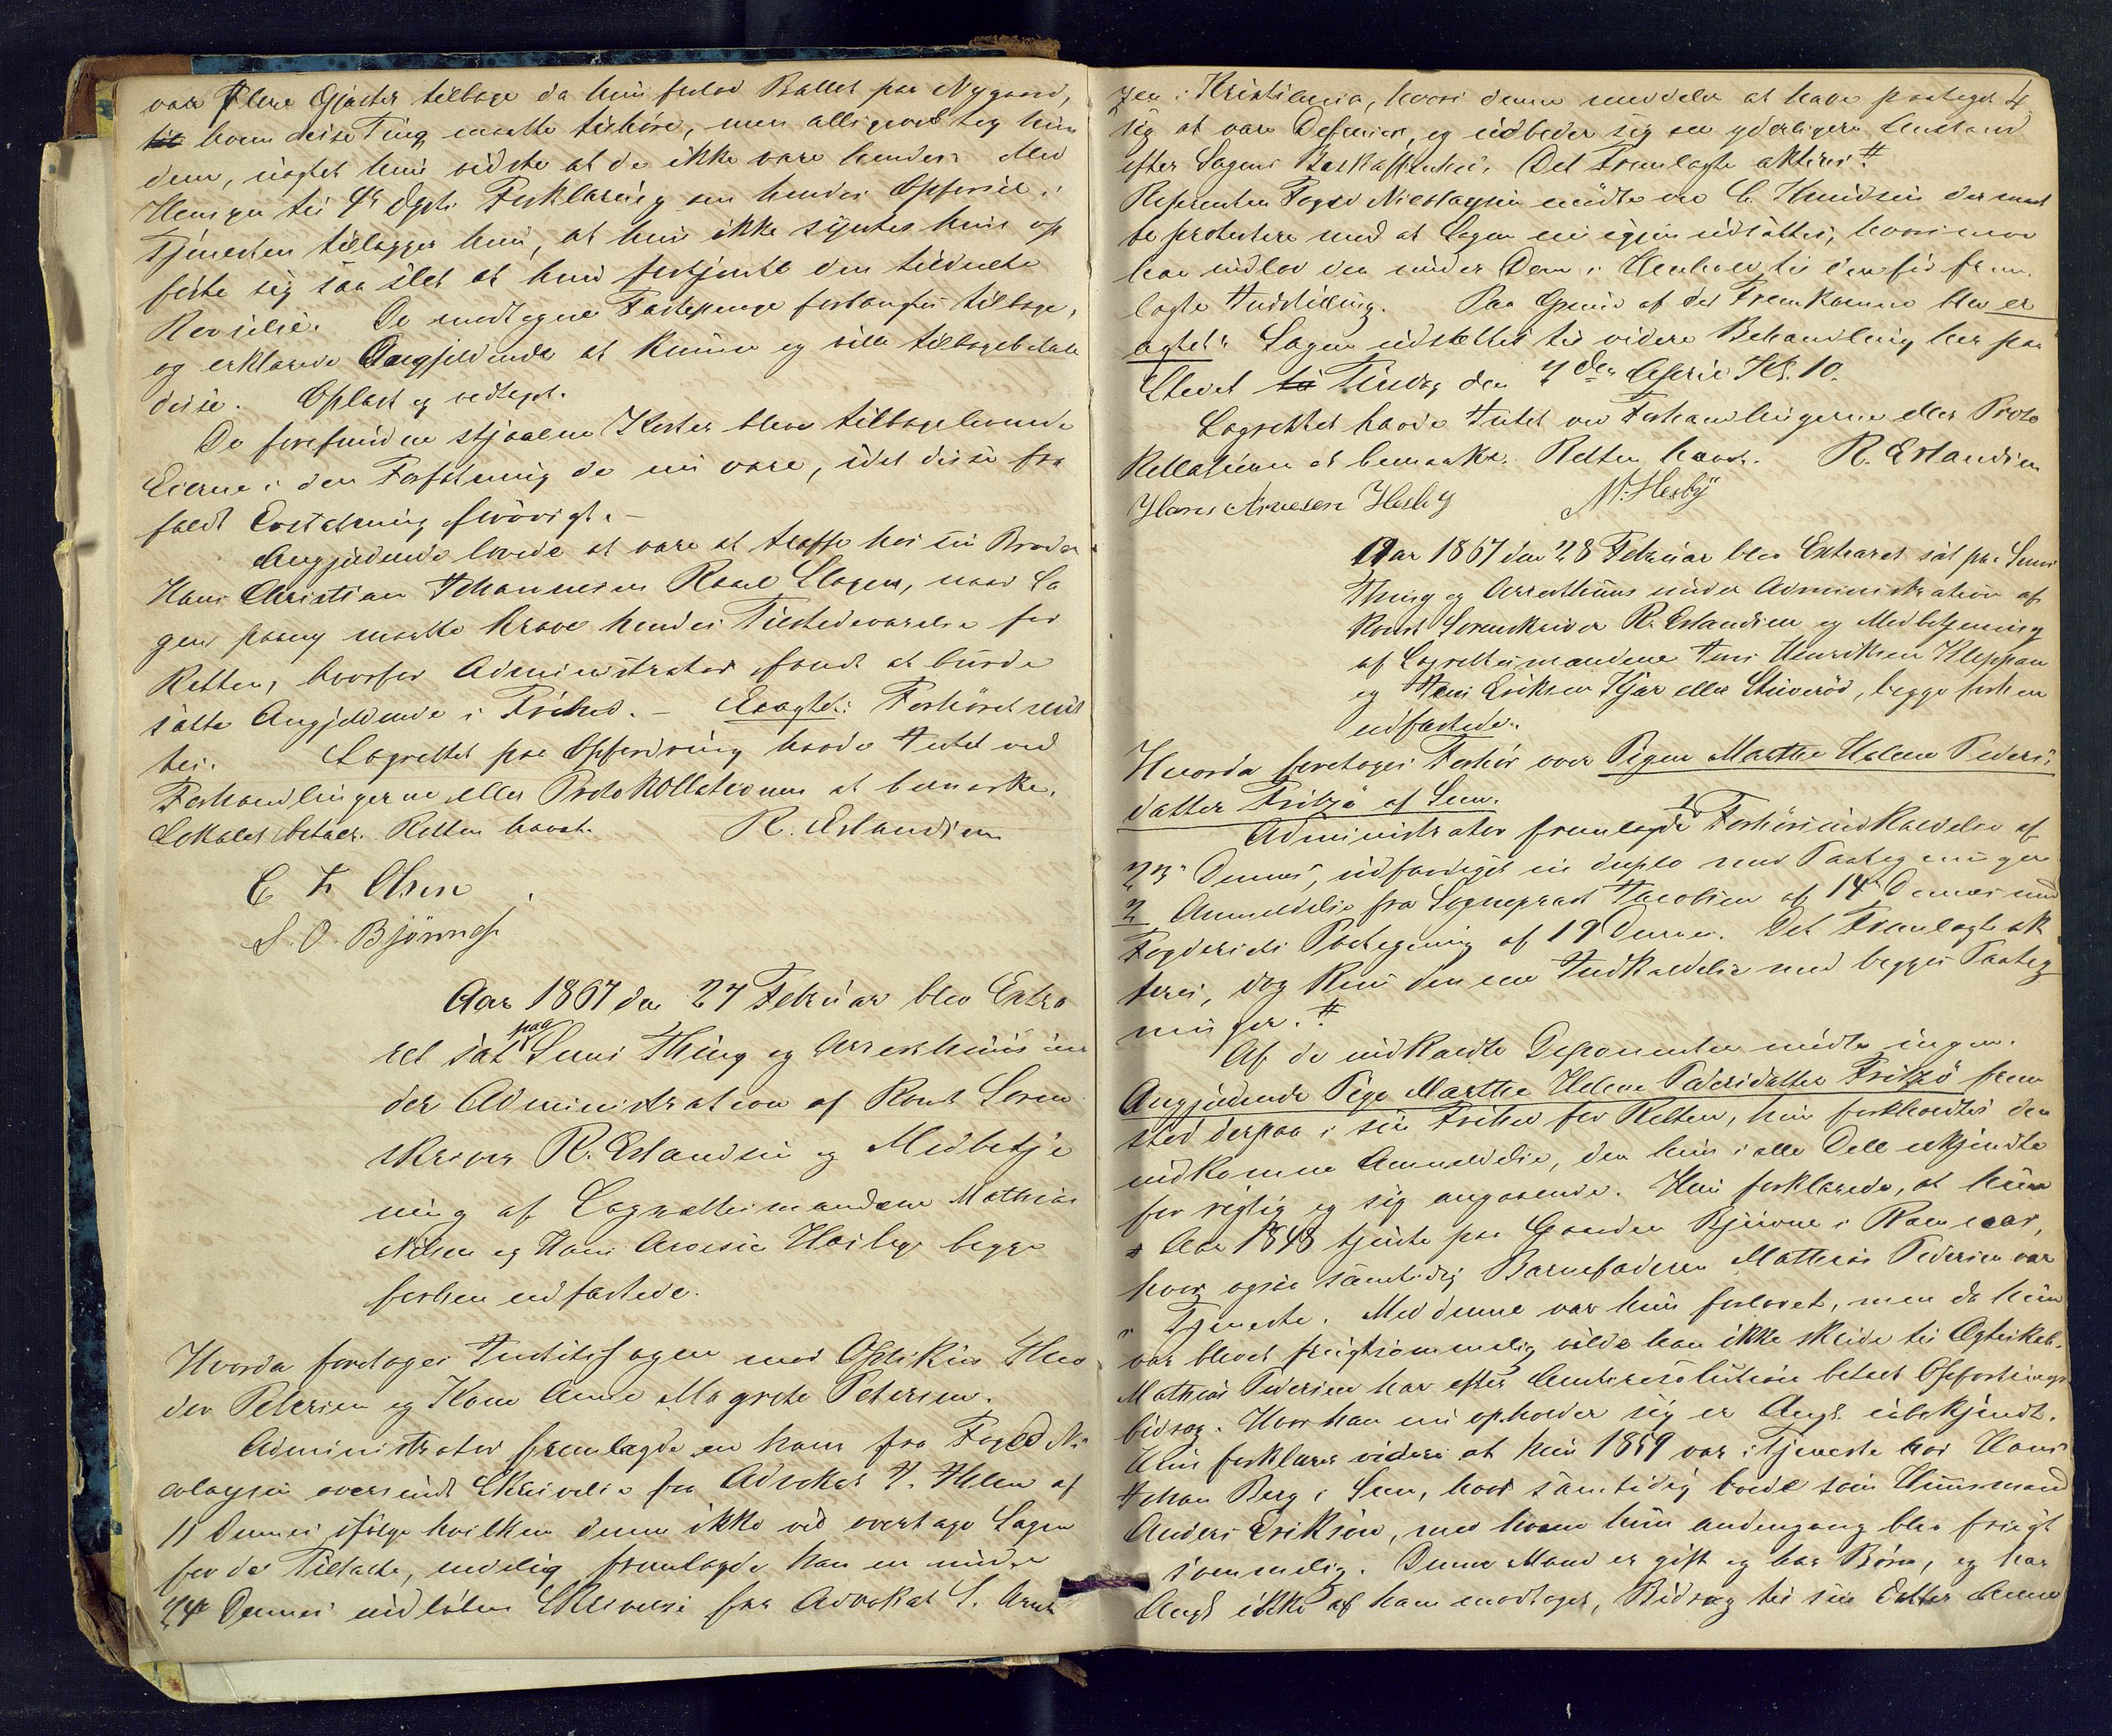 var flere Gjæster tilbage da hun forlod Ballet paa Nygaard,
hvem disse Ting maatte tilhøre, men alligevel tog hun
dem, uagtet hun vidste at de ikke vare hendes. Med
Hensyn til Forklaring om hendes Opførsel i
Tjenesten tillægger hun, at hun ikke syntes hun op
førte sig saa slet at hun fortjente den tildeelte
Revselse. De modtagne Fæstepenge forlangtes tilbage,
og erklærede Angjeldende at kunne og ville tilbagebetale
disse. Oplæst og vedtaget.
De forefundne stjaalne Koster bleve tilbageleverede
Eierne i den Forfatning de nu vare, idet disse fra
faldt Erstatning forøvrigt.
Angjeldende lovede at være at træffe hos sin Broder
Hans Christian Johannesen Roael Slagen, naar Sa
gen paany maatte kræve hendes Tilstedeværelse for
Retten, hvorfor Administrator fandt at burde
sætte Angjeldende i Frihed. – Eragtet: Forhøret slut
tes. Lagrettet paa Opfordring havde Intet ved
Forhandlingerne eller Protokollationen at bemærke.
Lokalet betalt. Retten hævet. R. Erlandsen
E T. Olsen
S. O. Bjønnes
Aar 1867 den 27 Februar blev Extra
ret sat paa Sems Thing og Arresthuus un
der Administration af Konst Soren
skriver R. Erlandsen og Medbetje
ning af Lagrettesmændene Mathias
Nilsen og Hans Arnesen Hasleby begge
forhen edfæstede.
Hvorda foretoges Justitssagen mod Optikus Theo
dor Petersen og Kone Anne Magrete Petersen.
Administrator fremlagde en ham fra Foged Ni
colaysen oversendt Skrivelse fra Advokat J. Hklen af
11 Dennes ifølge hvilken denne ikke vil overtage Sagen
for de Tiltalte, endelig fremlagde han en under
24 Dennes indløben Skrivelse fra Advokat S. Arnt
zen i Kristiania, hvori denne meddeler at have paataget 4
sig at være Defensor, og udbeder sig en yderligere Anstand
efter Sagens Beskaffenhed. Det Fremlagte akteres #
Referenten Foged Nicolaysen mødte ved C. Knudsen der maat
te protestere mod at Sagen nu igjen udsættes, hvorimod
han indlod den under Dom i Henhold til den før frem
lagte Indstilling. Paa Grund af det Fremkomne blev er
agtet: Sagen udsættes til videre Behandling her paa
Stedet Tirsdag den den April Kl. 10.
Lagrettet havde Intet ved Forhandlingerne eller Proto
kollationen at bemærke. Retten hævet. R. Erlandsen
Hans Arnesen Hesby M. Hesby
Aar 1867 den 28 Februar blev Extraret sat paa Sems
Thing og Arresthuus under Administration af
Konst Sorenskriver R. Erlandsen og Medbetjening
af Lagrettesmændene Jens Henriksen Kleppan
og Jens Eriksen Kjær eller Stuverød, begge forhen
edfæstede.
Hvorda foretoges Forhør over Pigen Marthe Helene Peders
datter Fritzø af Sem.
Administrator fremlagde 1 Forhørsindkaldelse af
Dennes, udfærdiget in duplo med Paategninger
2 Anmeldelse fra Sogneprest Jacobsen af 14 Dennes med
Fogderiets Paategning af 19 Dennes. Det Fremlagte ak
teres, dog kun den ene Indkaldelse med begges Paateg
ninger. #
Af de indkaldte Deponenter mødte ingen.
Angjeldende Pige Marthe Helene Pedersdatter Fritzø frem
stod derpaa i sin Frihed for Retten, hun forholdtes den
indkomne Anmeldelse, den hun i alle Dele erkjendte
for rigtig og sig angaaende. Hun forklarede, at hun
Aar 1848 tjente paa Gaarden Bjuerne i Ramnæs,
hvor ogsaa samtidig Barnefaderen Mathias Pedersen var
Tjeneste. Med denne var hun forlovet, men da hun
var blevet frugtsommelig vilde han ikke skride til Ægteskab.
Mathias Pedersen har efter Amtsresolution betalt Opfostrings
bidrag. Hvor han nu opholder sig er Angl. ubekjendt.
Hun forklarer videre at hun 1859 var i Tjeneste hos Hans
Johan Berg i Sem, hvor samtidig boede som Huusmand
Anders Eriksøn, med hvem hun andengang blev frugt
sommelig. Denne Mand er gift og har Børn, og har
Angl ikke af ham modtaget, Bidrag til sin Datter Anne